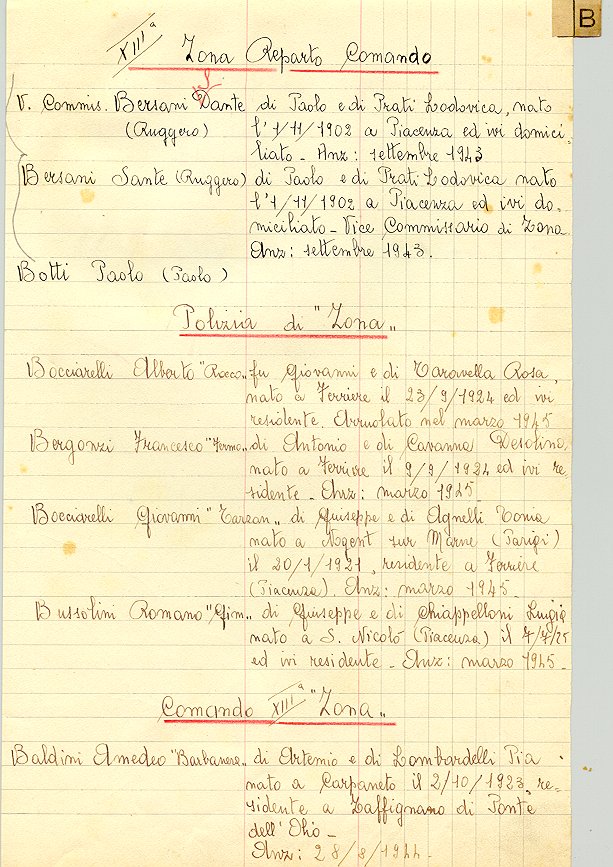 B
XIIIª Zona Reparto Comando
S
V. Commis. Bersani Dante di Paolo e di Prati Lodovica, nato
(Ruggero) l'1/11/1902 a Piacenza ed ivi domici-
liato - Anz: settembre 1943
Bersani Sante (Ruggero) di Paolo e di Prati Lodovica nato
l'1/11/1902 a Piacenza ed ivi do-
miciliato - Vice Commissario di Zona
Anz: settembre 1943.
Botti Paolo (Paolo)
Polizia di "Zona"
Bocciarelli Alberto "Rocco" fu Giovanni e di Taravella Rosa,
nato a Ferriere il 23/9/1924 ed ivi
residente. Arruolato nel marzo 1945
Bergonzi Francesco "Fermo" di Antonio e di Cavanna Desolina
nato a Ferriere il 9/9/1924 ed ivi re-
sidente - Anz: marzo 1945.
Bocciarelli Giovanni "Tarzan" di Giuseppe e di Agnelli Tonia
nato a Nogent sur Marne (Parigi)
il 20/1/1921, residente a Ferriere
(Piacenza). Anz: marzo 1945.
Bussolini Romano "Gim" di Giuseppe e di Chiappelloni Luigia
nato a S. Nicolò (Piacenza) il 7/7/25
ed ivi residente - Anz: marzo 1945 -
Comando XIIIª "Zona"
Baldini Amedeo "Barbanera" di Artemio e di Lombardelli Pia
nato a Carpaneto il 2/10/1923, re-
sidente a Zaffignano di Ponte
dell'Olio -
Anz: 28/8/1944 -